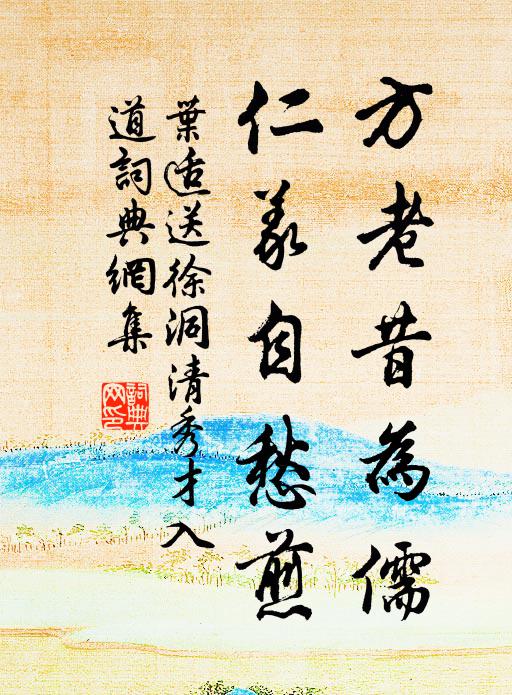 方老昔為儒
仁義自愁煎
葉适送徐洞清秀才入
道詞典網集
詞典
网印